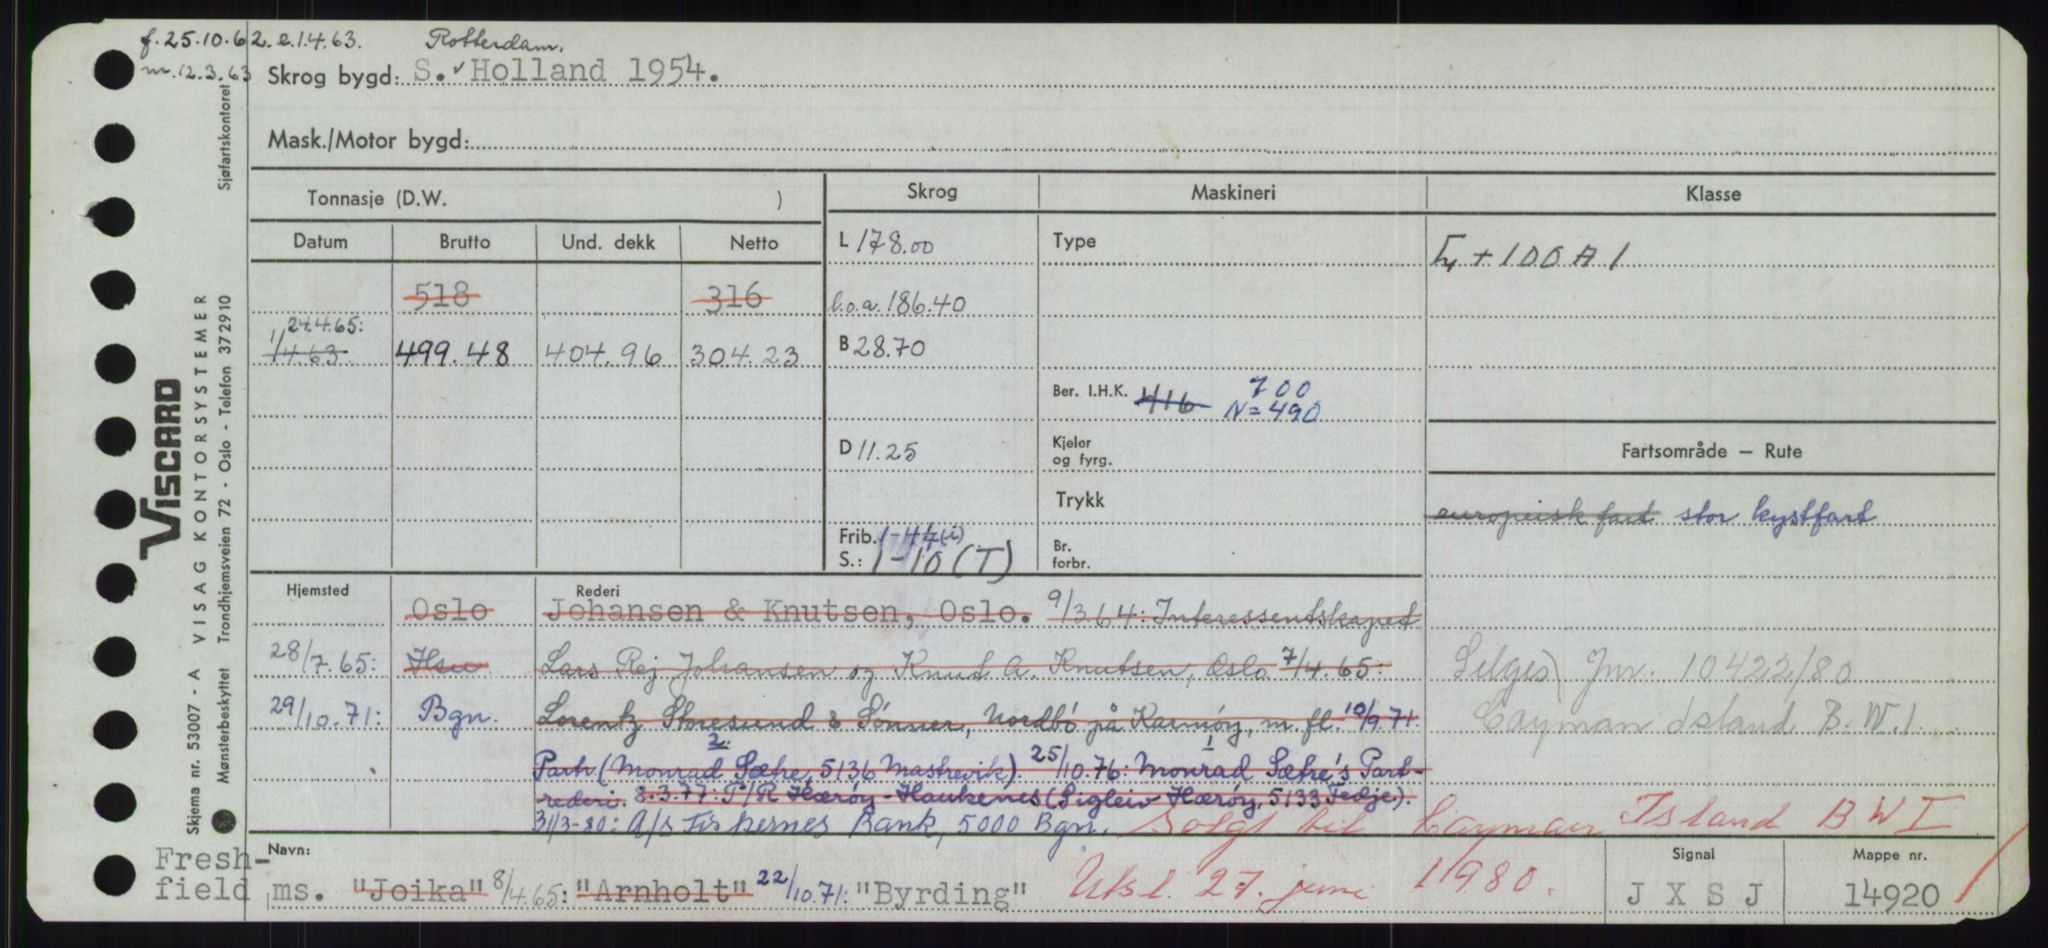 f. 25.10.62. e.1.4.63. Rotterdam,
m. 12.3.63 Skrog bygd: S. v Holland 1954.
Mask./Motor bygd:
Tonnasje (D.W. ) Skrog Maskineri Klasse
Datum Brutto Und. dekk Netto L 178.00 Type + 100 A 1
518 316 l.o.a. 186.40
24.4.65:
1/4.63 499.48 404.96 304.23 B 28.70
Ber. I.H.K. 416 700
N=490
D 11.25 Kjeler
og fyrg. Fartsområde — Rute
Trykk
europeisk fart stor kystfart
Frib. 1-4¼(i) Br.
S.: 1-10 (T) forbr.
Hjemsted Rederi
Oslo Johansen & Knutsen, Oslo. 9/3.64: Interessentskapet
28/7.65: Hsu Lars Rej Johansen og Knut A. Knutsen, Oslo 7/4.65: Selges Jnr. 10422/80
29/10.71: Bgn. Lorentz Storesund & Sønner, Nordbö på Karmøy, m.fl. 10/9.71 Cayman Island B.W.I.
2. 1
Partr. (Monrad Sætre, 5136 Mastrevik). 25/10.76: Monrad Sætre's Part-
rederi. 8.3.77: P/R Hærøy-Haukenes (Sigleiv Hærøy, 5133 Fedje).
31/3-80: A/s Fiskernes Bank, 5000 Bgn. Solgt til Cayman Island B W I
Navn: Signal Mappe nr.
Fresh-
field ms. "Joika" 8/4.65: "Arnholt" 22/10.71: "Byrding" Utsl. 27. juni 1980. J X S J 14920
Sjøfartskontoret
VISCARD
VISAG KONTORSYSTEMER
Trondhjemsveien 72 - Oslo - Telefon 37 29 10
Skjema nr. 53007 - A
Mønsterbeskyttet